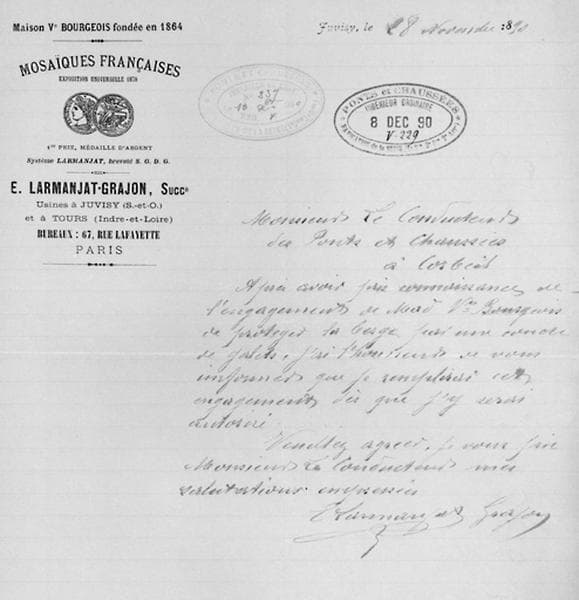 Maison Vᵉ BOURGEOIS fondée en 1864
MOSAÏQUES FRANÇAISES
EXPOSITION UNIVERSELLE 1878
1ᵉʳ PRIX, MÉDAILLE D'ARGENT
Système LARMANJAT, breveté S. G. D. G.
E. LARMANJAT-GRAJON, Succʳ
Usines à JUVISY (S.-et-O.)
et à TOURS (Indre-et-Loire)
BUREAUX : 67, RUE LAFAYETTE
PARIS
Juvisy, le 28 Novembre 1890
337
PONTS et CHAUSSÉES
INGÉNIEUR ORDINAIRE
8 DEC 90
V-229
Monsieur Le Conducteur
des Ponts et Chaussées
à Corbeil
Après avoir pris connaissance de
l'engagement de Mad Vᵉ Bourgeois
de protéger la berge par une couche
de galets, j'ai l'honneur de vous
informer que je remplirai cet
engagement dès que j'y serai
autorisé
Veuillez agréer, je vous prie
Monsieur Le Conducteur mes
salutations empressées
E Larmanjat Grajon